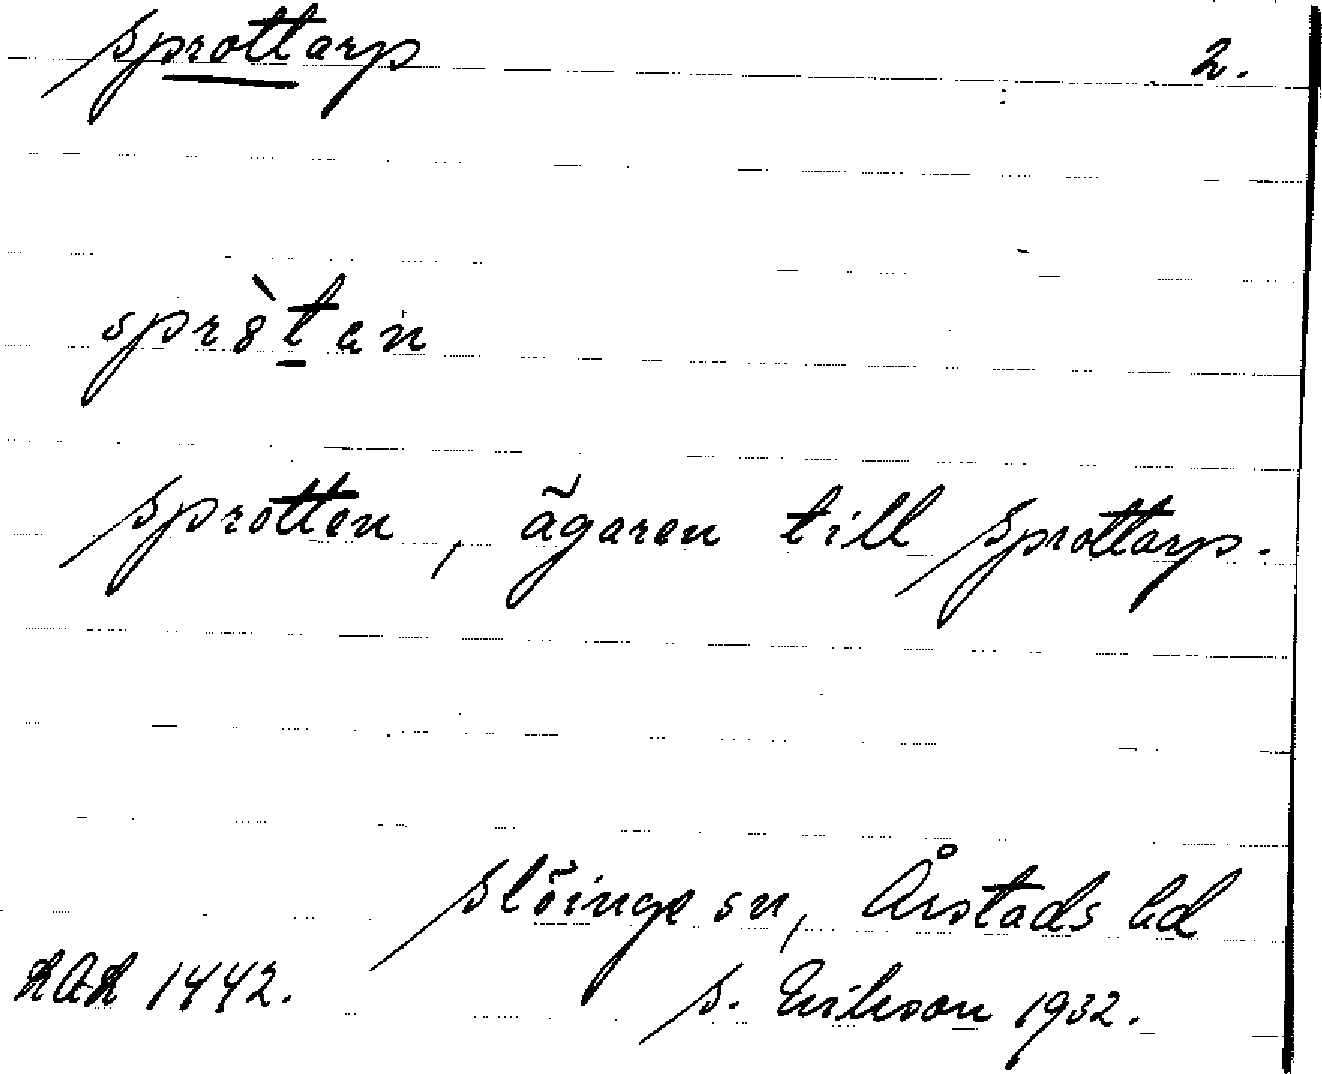 Sprottarp 2.
spròtan
Sprotten, ägaren till Sprottarp.
Slöinge sn, Årstads hd
LAL 1442. S. Erikson 1932.